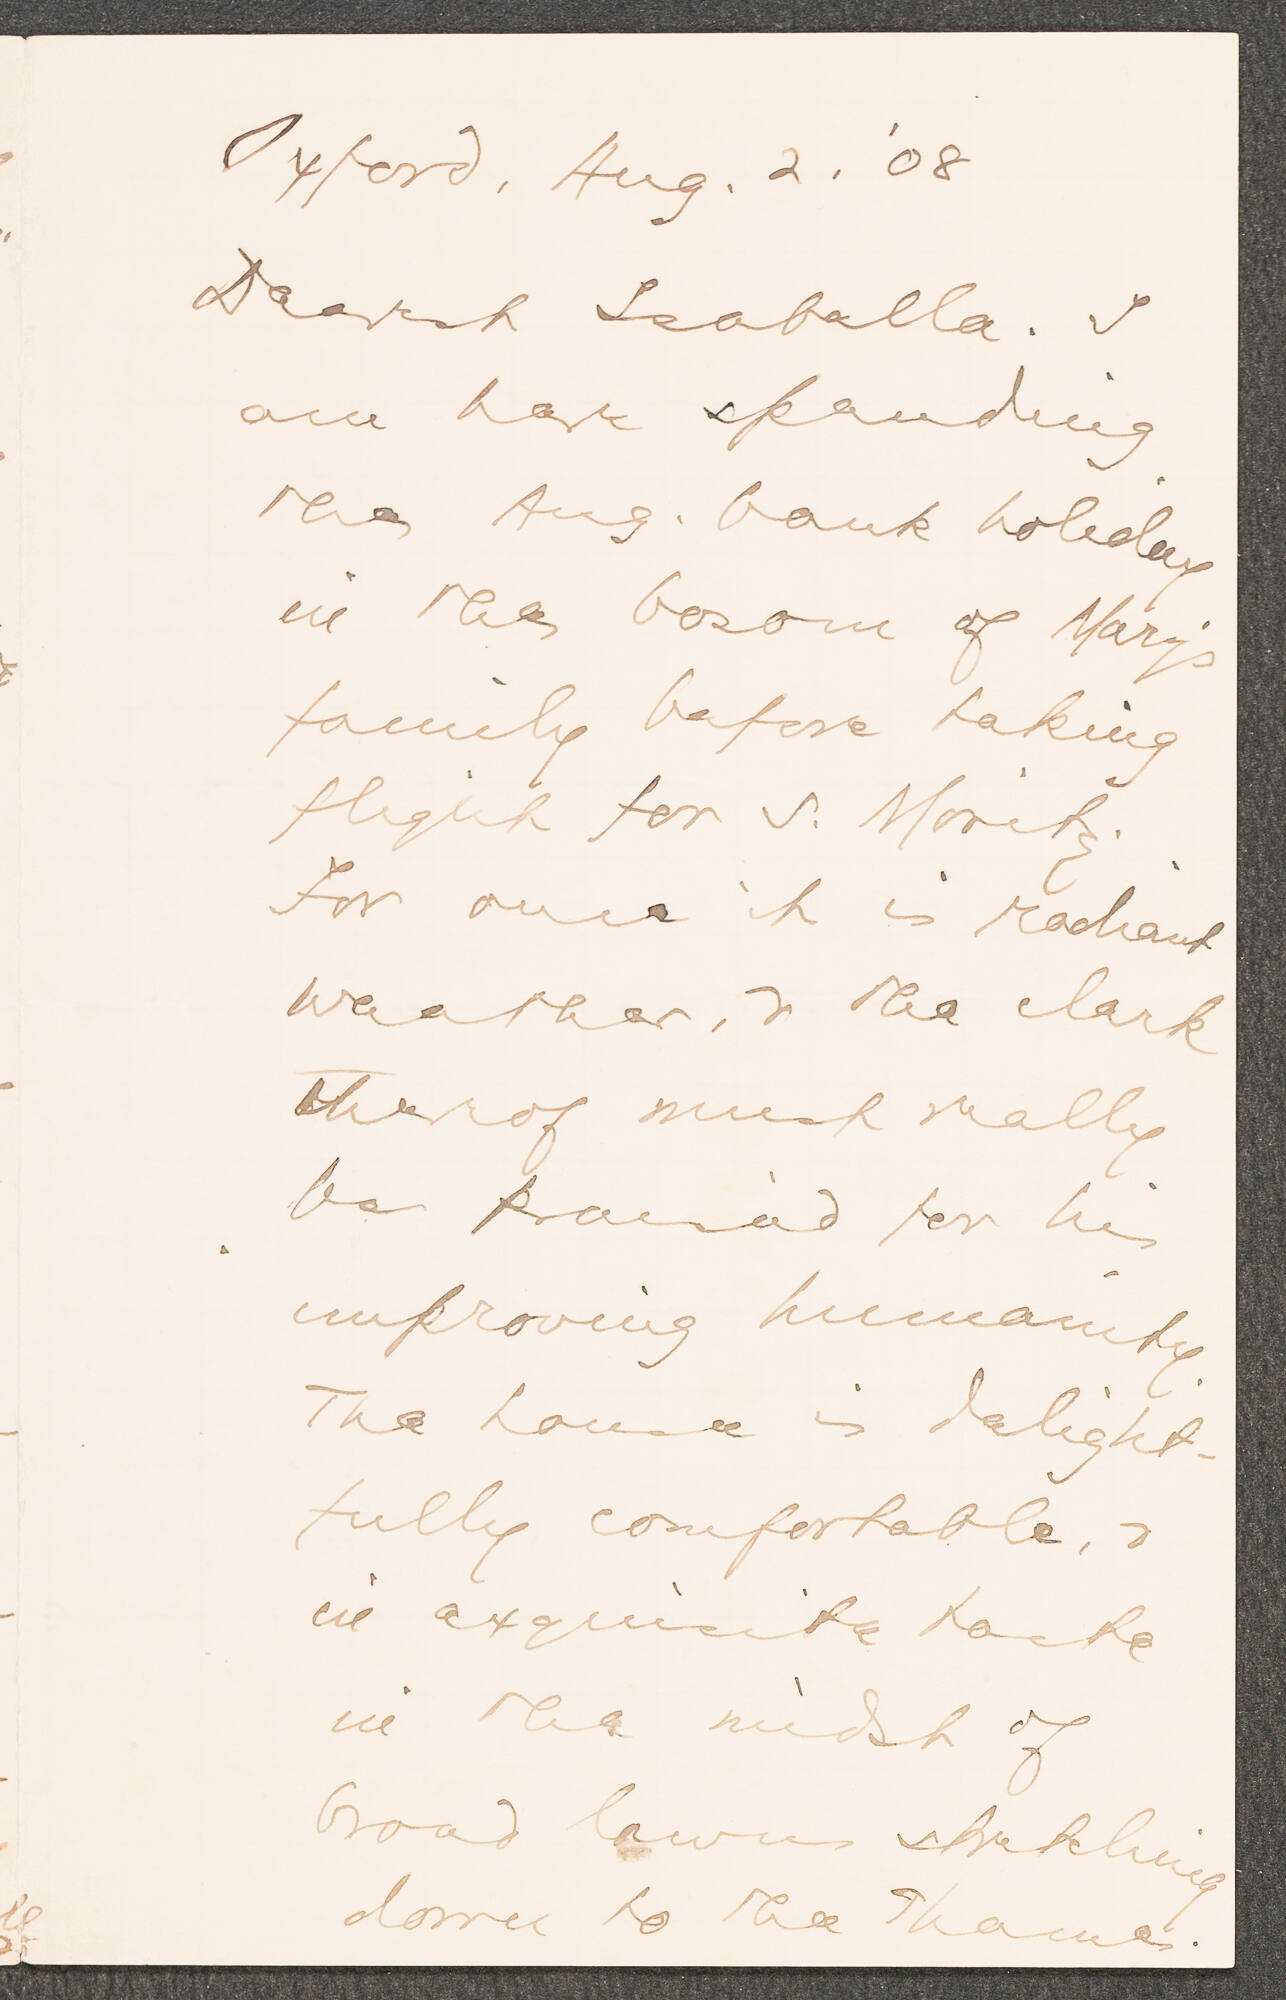 Oxford, Aug. 2, '08
Dearest Isabella. I
am here spending
the Aug. bank holiday
in the bosom of Mary's
family before taking
flight for S. Moritz.
For once it is radiant
weather, & the clerk
thereof must really
be praised for his
improving humanity.
The house is delight-
fully comfortable, &
in exquisite taste
in the midst of
broad lawns stretching
down to the Thames.